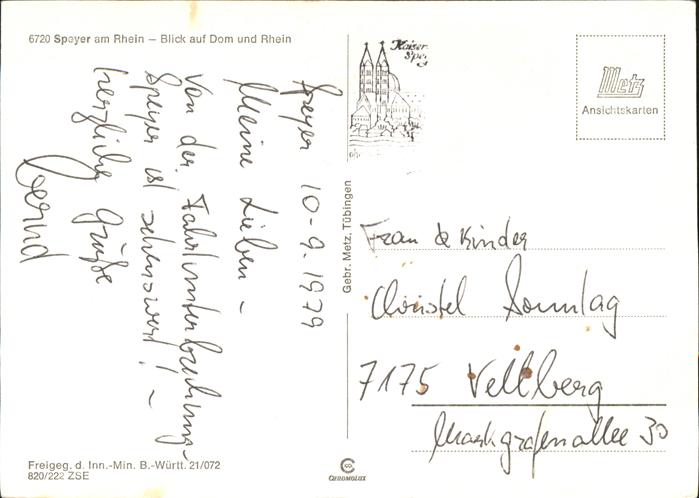 6720 Speyer am Rhein – Blick auf Dom und Rhein
Speyer 10-9.1979
Meine Lieben –
Von der Fahrtunterbrechung –
Speyer ist sehenswert! –
herzliche Grüße
Bernd
Freigeg. d. Inn.-Min. B.-Württ. 21/072
820/222 ZSE
Gebr. Metz, Tübingen
CHROMOLUX
Kaiser
Spey
Metz
Ansichtskarten
Frau & Kinder
Christel Sonntag
7175 Vellberg
Markgrafenallee 30